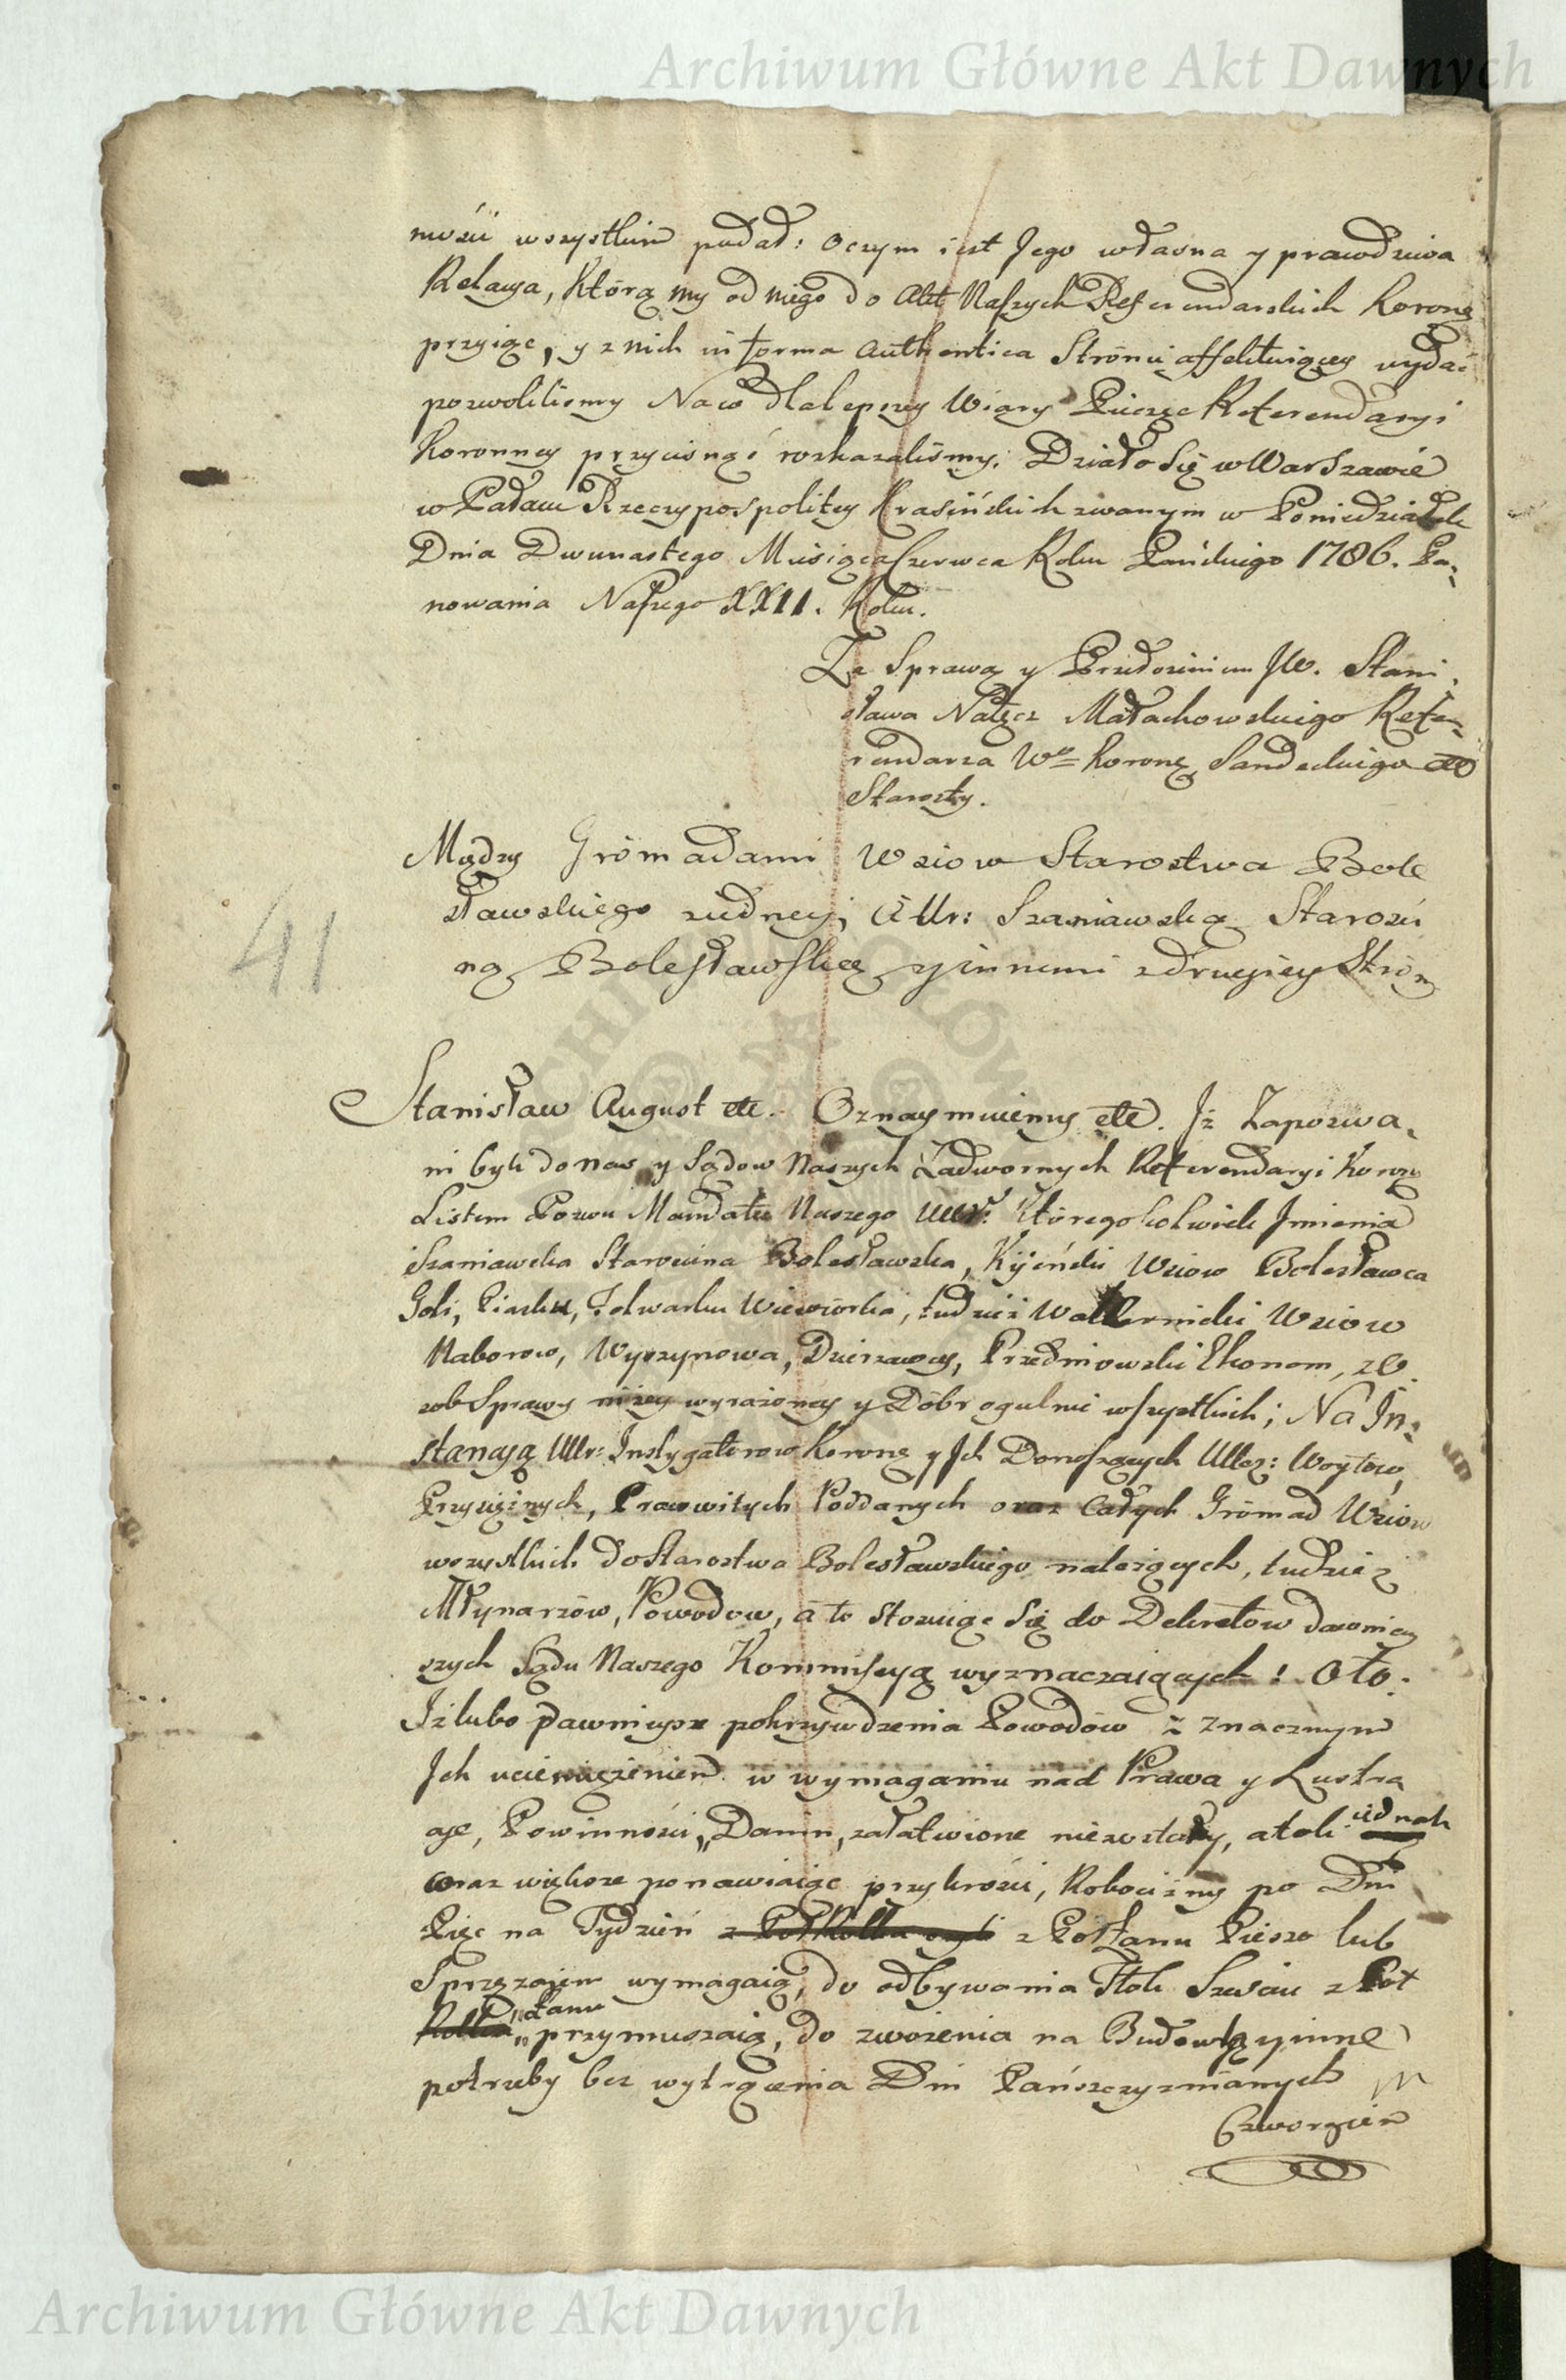 Archiwum Główne Akt Dawnych
mości wszystkim podał: o czym iest Jego własna y prawdziwa
Relacya, którą my od niego do Akt Naszych Referendarskich Koronq
przyiąć, y z nich in forma authentica Stronie affektuiącey wydać
pozwolilismy Na co dla lepszey Wiary Pieczęć Referendaryi
Koronney przycisnąć rozkazalismy. Działo Się w Warszawie
w Pałacu Rzeczypospolitey Krasińskich zwanym w Poniedziałek
Dnia Dwunastego Miesiąca Czerwca Roku Pańskiego 1786. Pa-
nowania Naszego XXII. Roku.
Za Sprawą y Przełożeniem JW. Stani-
sława Nałęcz Małachowskiego Refe-
rendarza Wo Koronq Sandeckiego etc
Starosty.
Między Gromadami Wsiow Starostwa Bole
sławskiego z iedney, a Ur: Szaniawską Starości
ną Bolesławską y innemi z drugiey Stron
41
Stanisław August etc. Oznaymuiemy etc. Iż Zapozwa-
ni byli do nas y Sądow Naszych Zadwornych Referendaryi Koronq
Listem Pozwu Mandatu Naszego Uur: któregokolwiek Jmienia
Szaniawska Starościna Bolesławska, Kijeński Wsiow Bolesławca
Goli, Piasku, Folwarku Wiewiorka, tudzież Walknowski Wsiow
Naborow, Wyszynowa, Dzierzawcy, Przedniowski Ekonom, z O
sob Sprawy niżey wyrażoney y Dobr ogulnie wszystkich; Na In-
stancyą UUr: Instygatorow Koronq y Ich Donoszących UUcz: Woytow,
Przysiężnych, Pracowitych Poddanych oraz Całych Gromad Wsiow
wszystkich do Starostwa Bolesławskiego należących, tudzież
Młynarzow, Powodow, a to stosuiąc Się do Dekretow dawniey
szych Sądu Naszego Kommissyą wyznaczaiących! Oto:
Iż lubo dawnieysze pokrzywdzenia Powodow z znacznym
Ich uciemiężeniem w wymaganiu nad Prawa y Lustra
cye, Powinności, Danin, załatwione niezostały, atoli iednak
coraz większe ponawiaiąc przykrości, Robocizny po Dni
Pięć na Tydzień z Połłanu Pieszo lub
Sprzężaiem wymagaią, do odbywania Tłok Sześciu z Poł
łanu przymuszaią, do zwożenia na Budowlą y inne
potrzeby bez wytrącenia Dni Pańszczyznianych
Czworgiem
Archiwum Główne Akt Dawnych